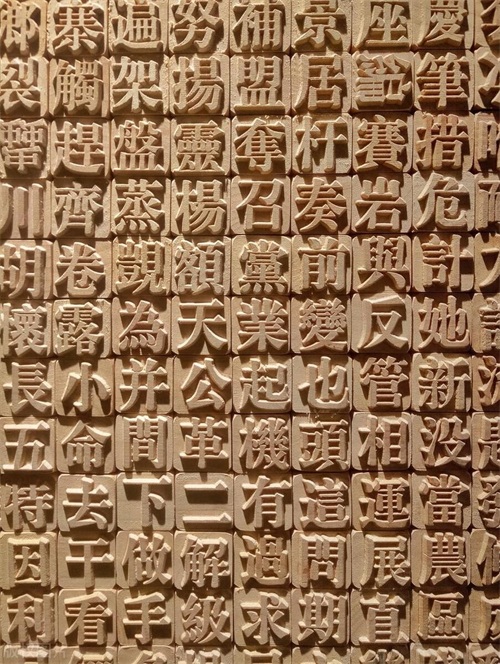 寨遍努補景座慶
裂觸架揚盟居筆
臂趕盤靈奪杆賽措
川齊蒸楊召奏岩危
明卷覬額黨前與計
懷露為天業變反她
長小并公起也管新
五命間革機頭相沒
特去下二有這運當
因干做解過問展農
利看手級求期直區